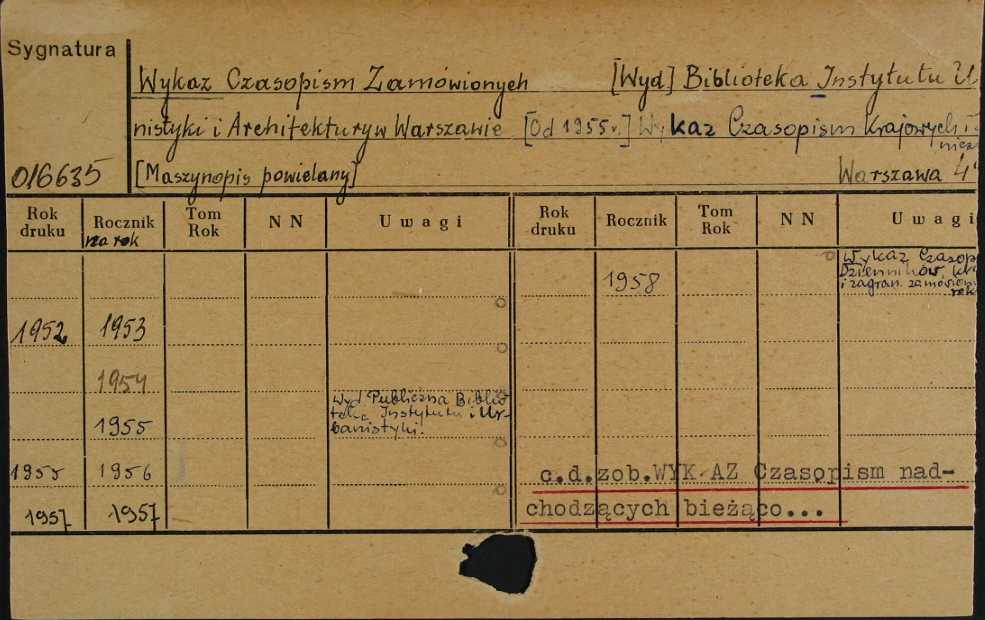 Sygnatura
Wykaz Czasopism Zamówionych [Wyd] Biblioteka Instytutu U
nistyki i Architektury w Warszawie [Od 1955 r.] Wykaz Czasopism Krajowych i
016635 [Maszynopis powielany] Warszawa 4°
Rok druku Rocznik na rok Tom Rok N N Uwagi Rok druku Rocznik Tom Rok N N Uwagi
1958 Wykaz Czasop
Dzienników, kra
i zagran. zamówion
rok
1952 1953
1954
1955 Wyd Publiczna Biblio
teka Instytutu i Ur-
banistyki.
1955 1956
1957 1957
c.d.zob.WYK AZ Czasopism nad-
chodzących bieżąco...